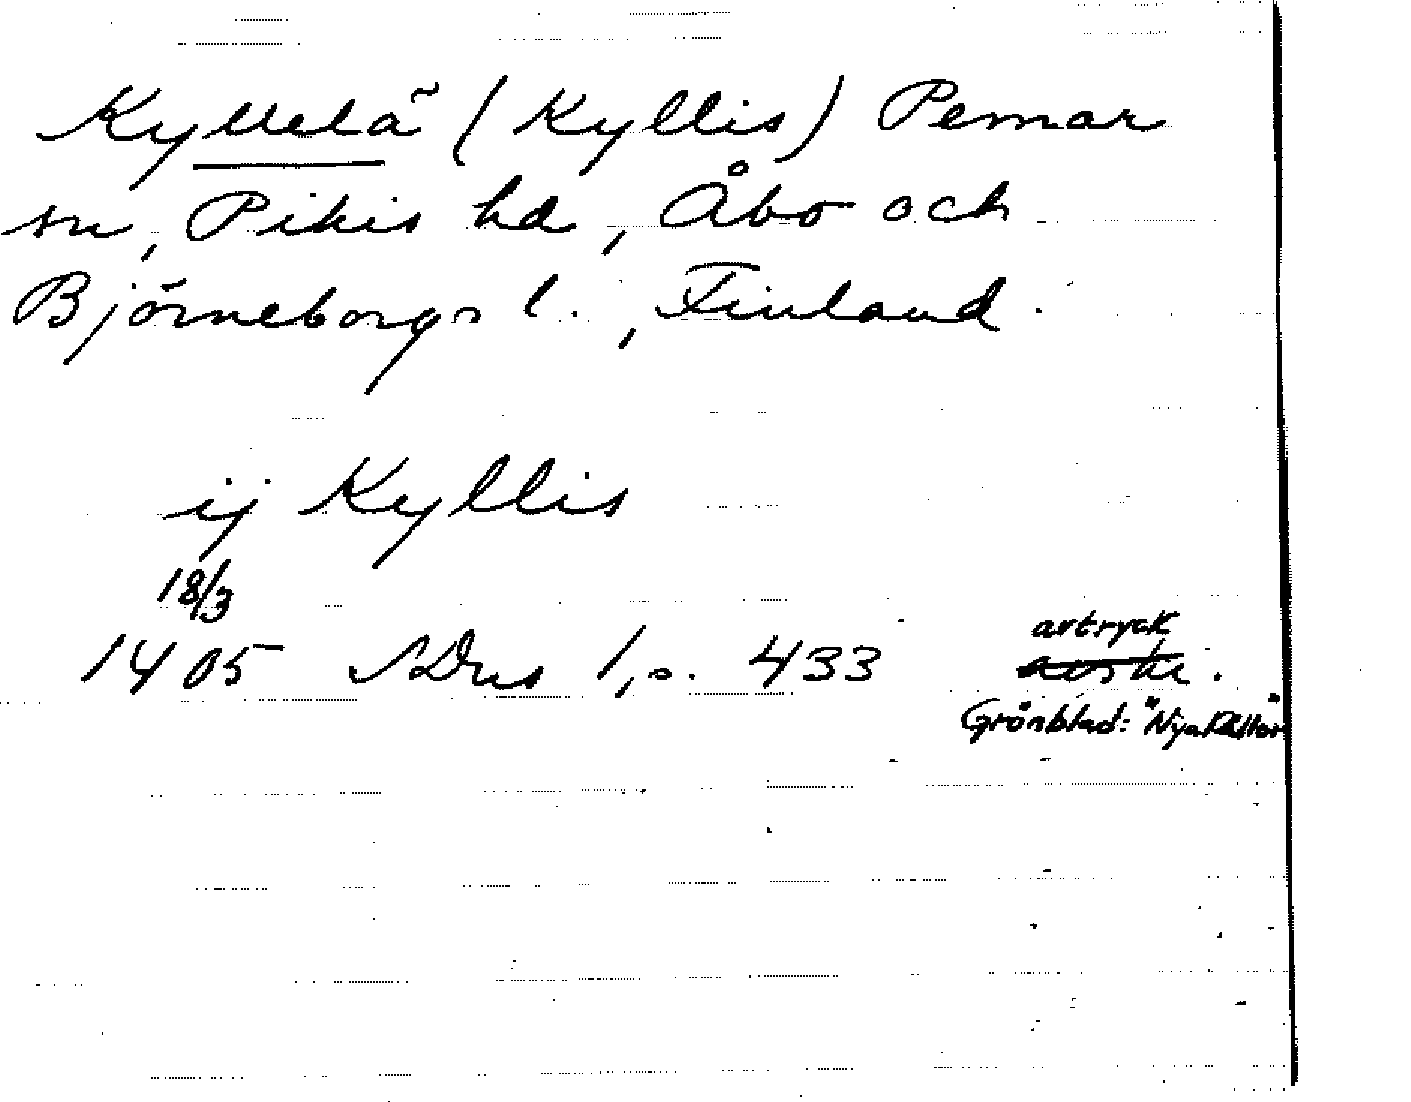 Kyllelä (Kyllis) Pemar
sn, Pikis hd, Åbo och
Björneborgs l., Finland.
ij Kyllis
18/3
1405 SDns 1, s. 433
avtryck
Grönblad: "Nya Källor"